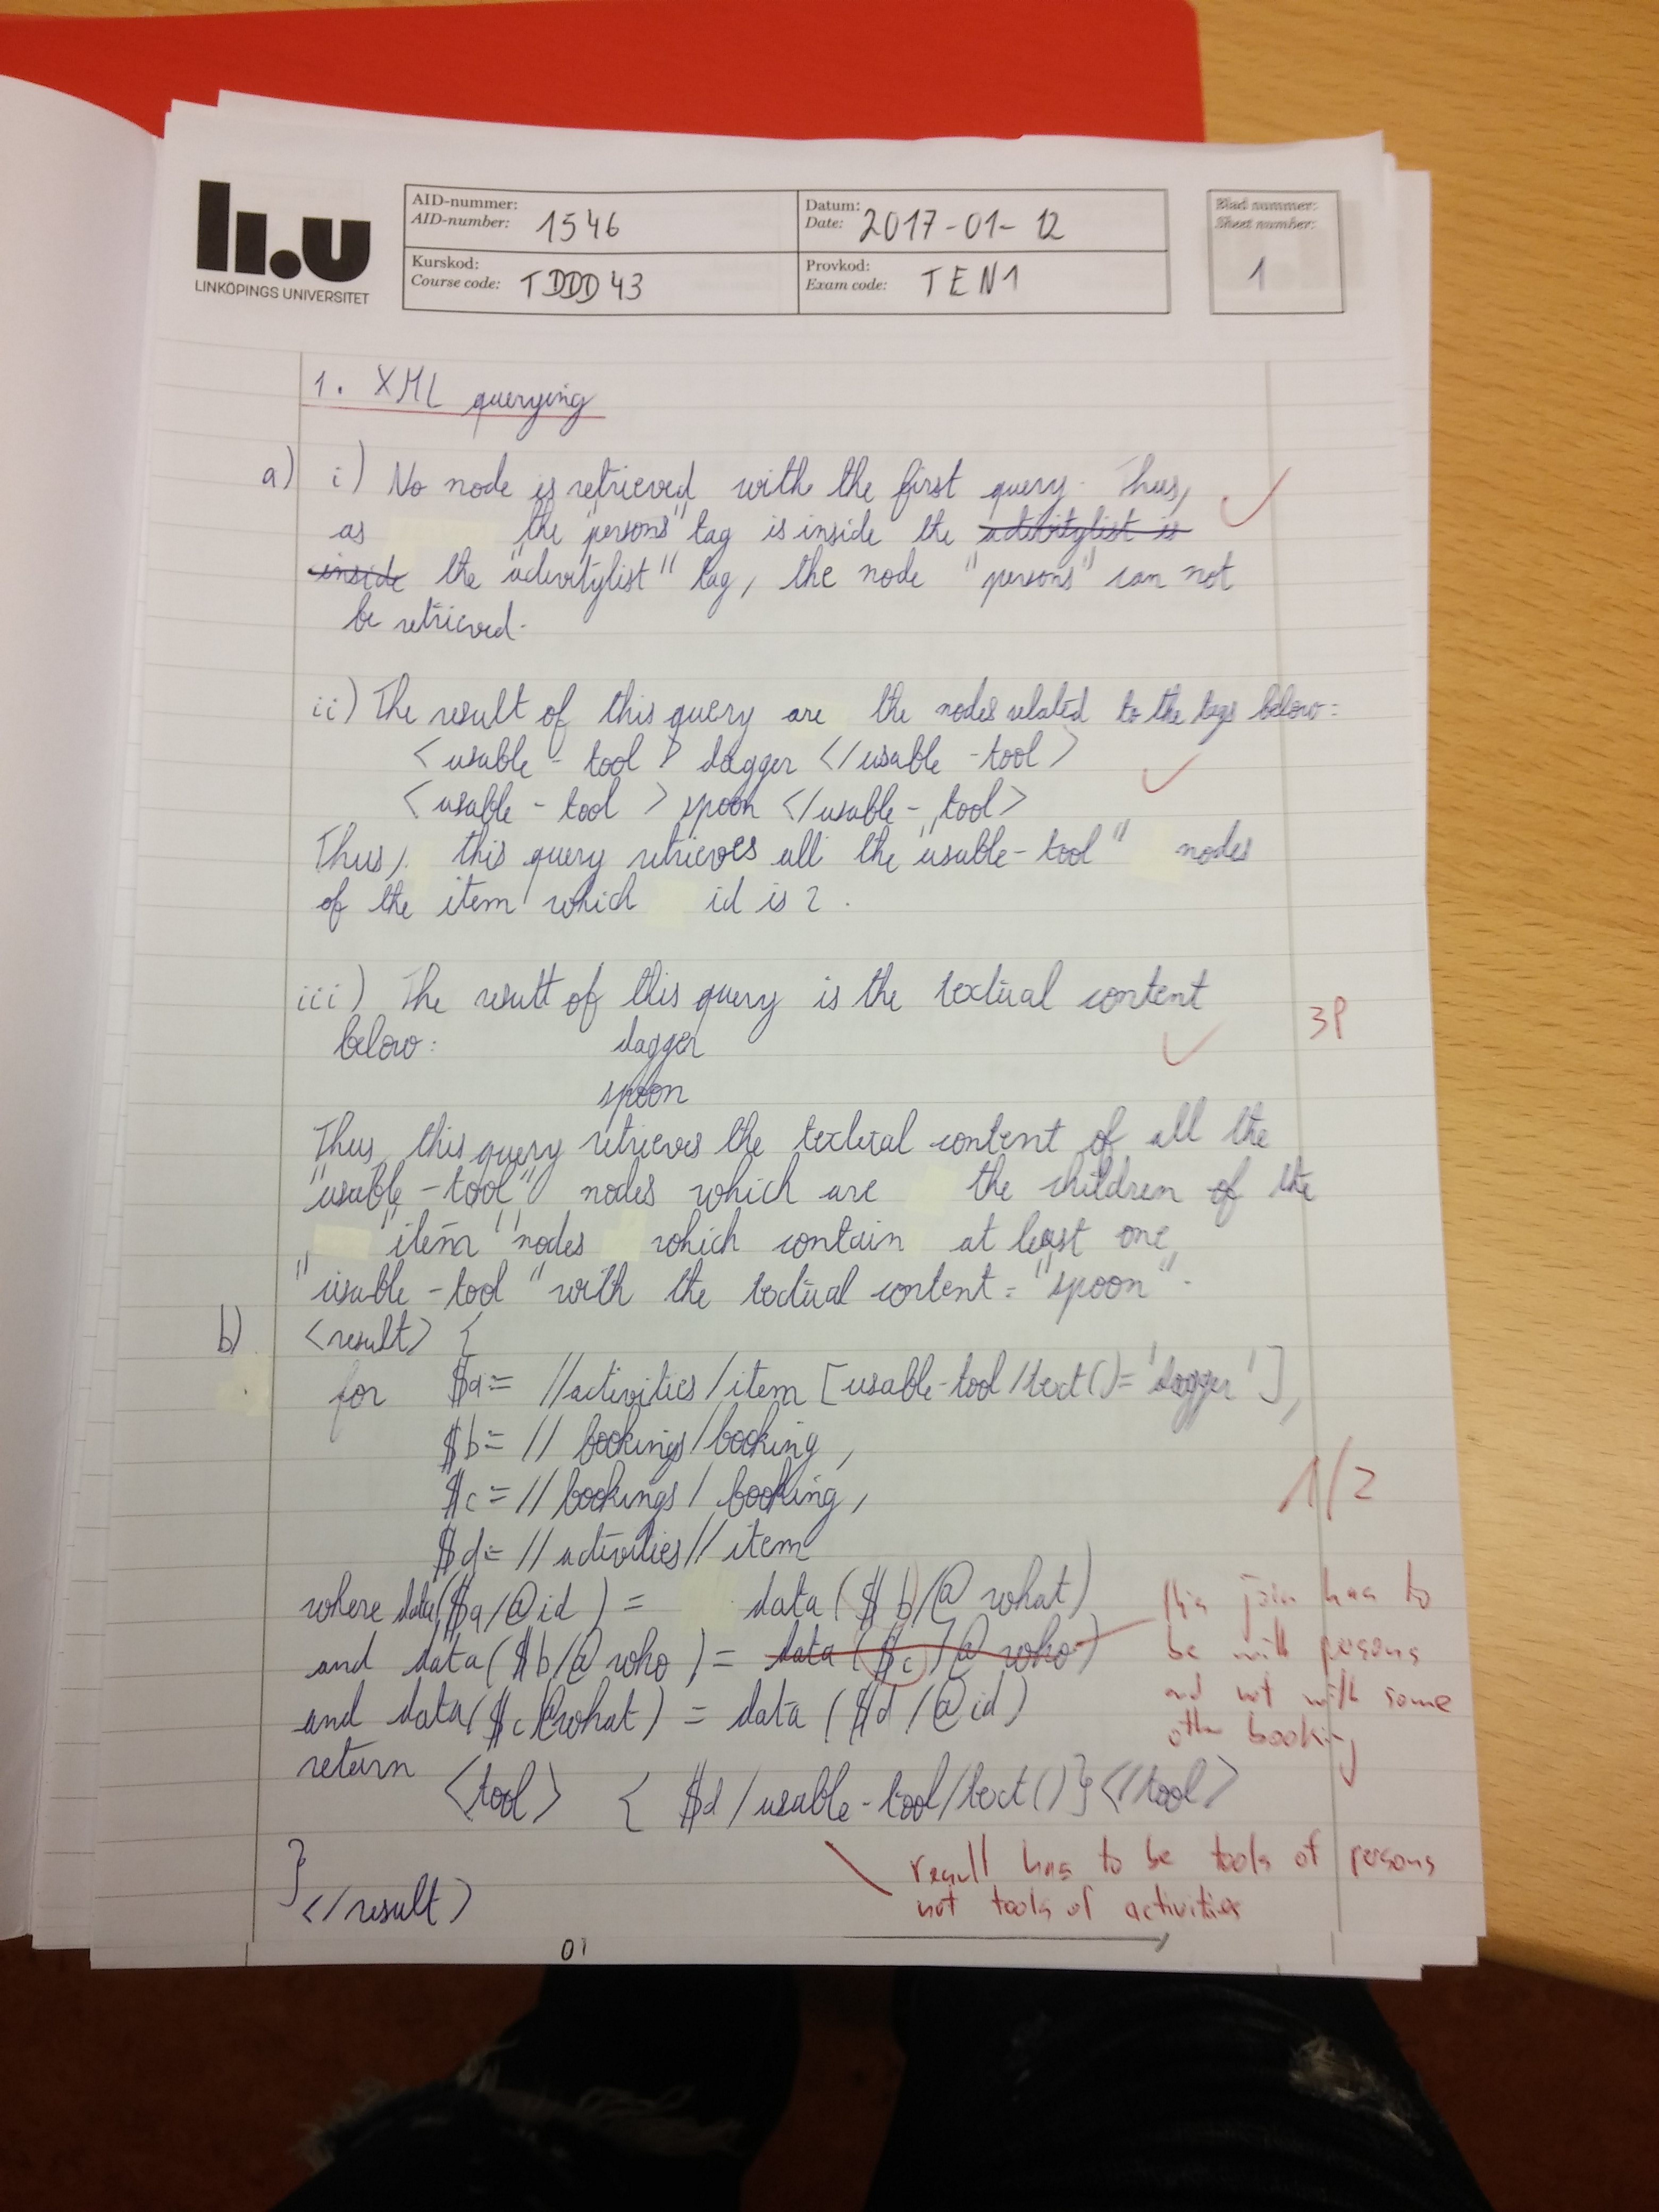 li.u
LINKÖPINGS UNIVERSITET
AID-nummer:
AID-number: 1546
Datum:
Date: 2017-01-12
Kurskod:
Course code: TDDD43
Provkod:
Exam code: TEN1
Blad nummer:
Sheet number:
1
1. XML querying
a) i) No node is retrieved with the first query. Thus,
as the "persons" tag is inside the activitylist is
inside the "activitylist" tag, the node "persons" can not
be retrieved.
ii) The result of this query are the nodes related to the tags below:
<usable-tool> dagger </usable-tool>
<usable-tool> spoon </usable-tool>
Thus, this query retrieves all the "usable-tool" nodes
of the item which id is 2.
iii) The result of this query is the textual content
below: dagger
spoon
3P
Thus this query retrieves the textual content of all the
"usable-tool" nodes which are the children of the
"item" nodes which contain at least one
"usable-tool" with the textual content = "spoon".
b) <result> {
for $a= //activities/item [usable-tool/text()='dagger'],
$b= //bookings/booking,
$c= //bookings/booking,
1/2
$d= //activities//item
where data($a/@id) = data($b/@what)
and data($b/@who) = data($c/@who)
and data($c/@what) = data($d/@id)
this join has to
be with persons
and not with some
other booking
return <tool> { $d/usable-tool/text()}</tool>
}
</result>
result has to be tools of persons
not tools of activities
01